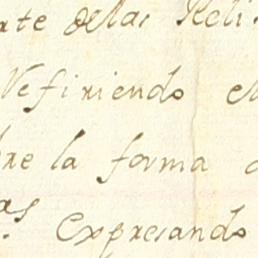 rte delas Reli
Refiriendo el
re la forma
as expresando